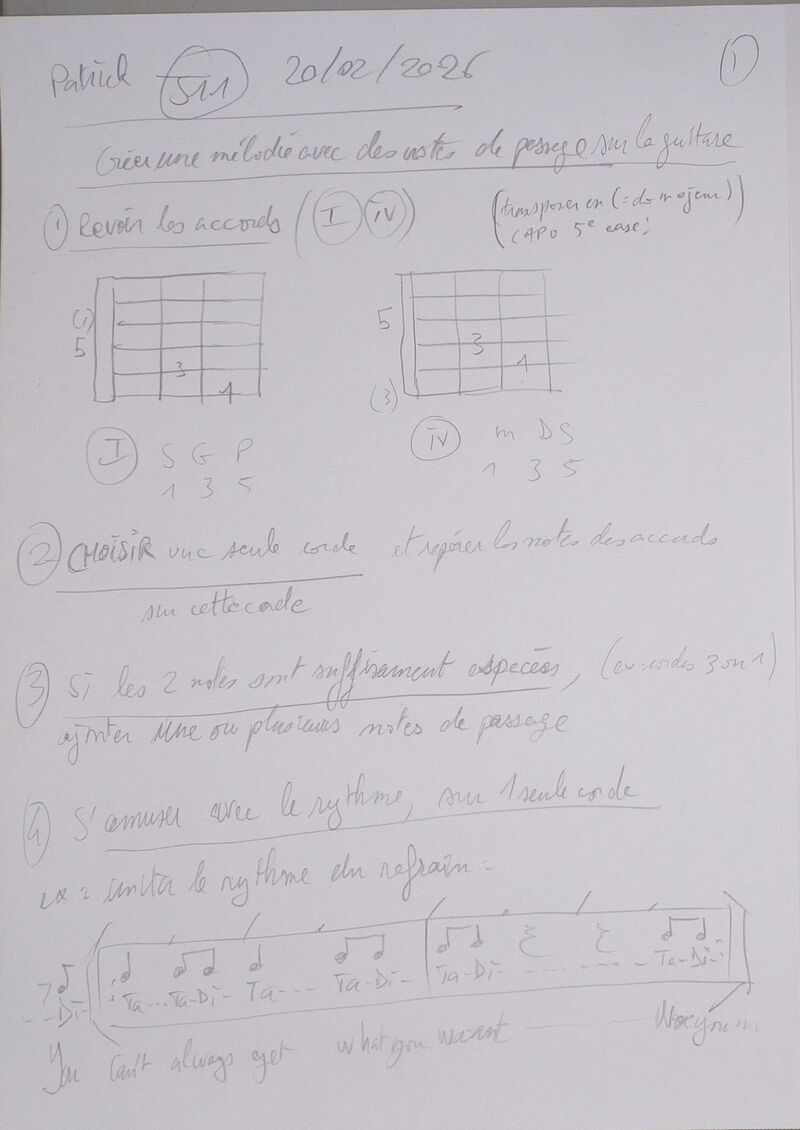 Patrick S11 20/02/2026 1
Créer une mélodie avec des notes de passage sur la guitare
1 Revoir les accords (I iv) (transposer en (=do majeur)
CAPO 5e case!
(1)
5
3
4
5
3
4
(3)
I S G P
1 3 5
iv m D S
1 3 5
2 CHOISIR une seule corde et repérer les notes des accords
sur cette corde
3 Si les 2 notes sont suffisament espacées, (ex: cordes 3 ou 1)
ajouter une ou plusieurs notes de passage
4 S'amuser avec le rythme, sur 1 seule corde
ex = imiter le rythme du refrain =
--Di- Ta...Ta-Di- Ta---- Ta-Di- Ta-Di- ... ---- Ta-Di-
You can't always get what you want